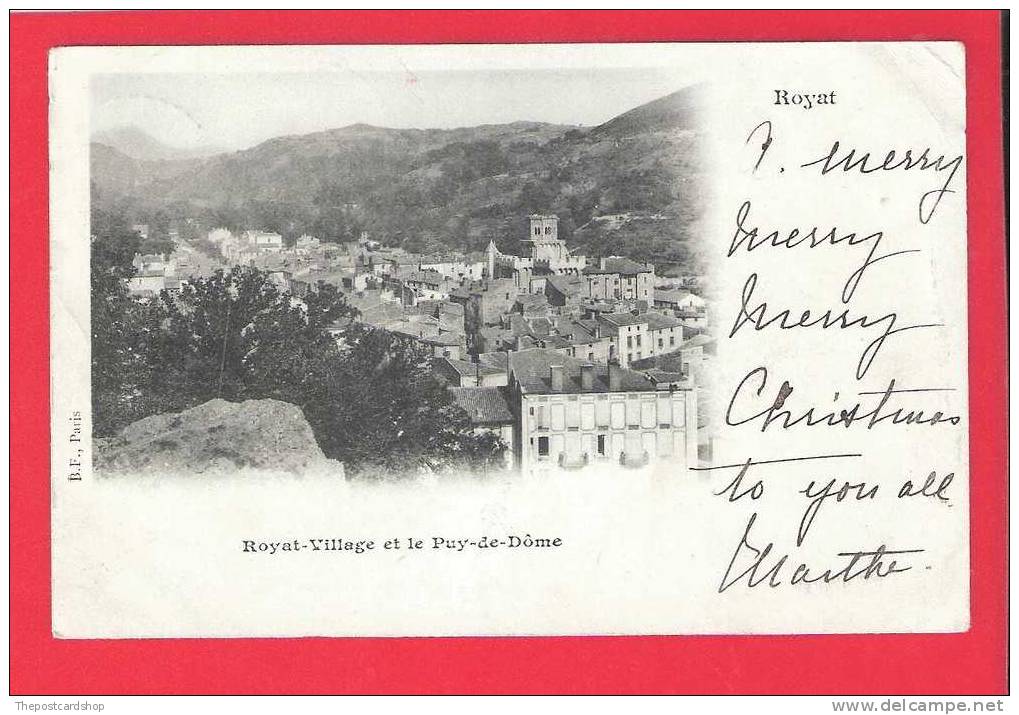 Royat
A merry
Merry
Merry
Christmas
to you all
Marthe.
B.F., Paris
Royat-Village et le Puy-de-Dôme
Thepostcardshop
www.delcampe.net